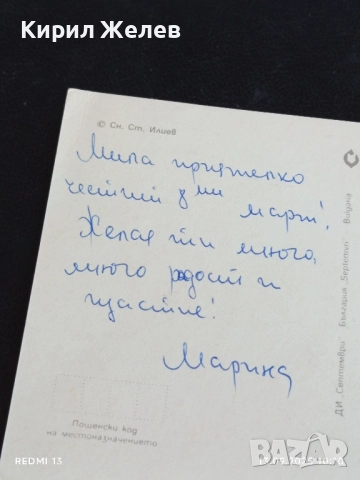 Кирил Желев
© Сн. Ст. Илиев
Мила приятелко
честит 8 ми
март!
Желая ти много,
много радост и
щастие!
Марина
Пощенски код
на местоназначението
ДИ „Септември“ България "Septemvri" Bulgaria
REDMI 13
bazar